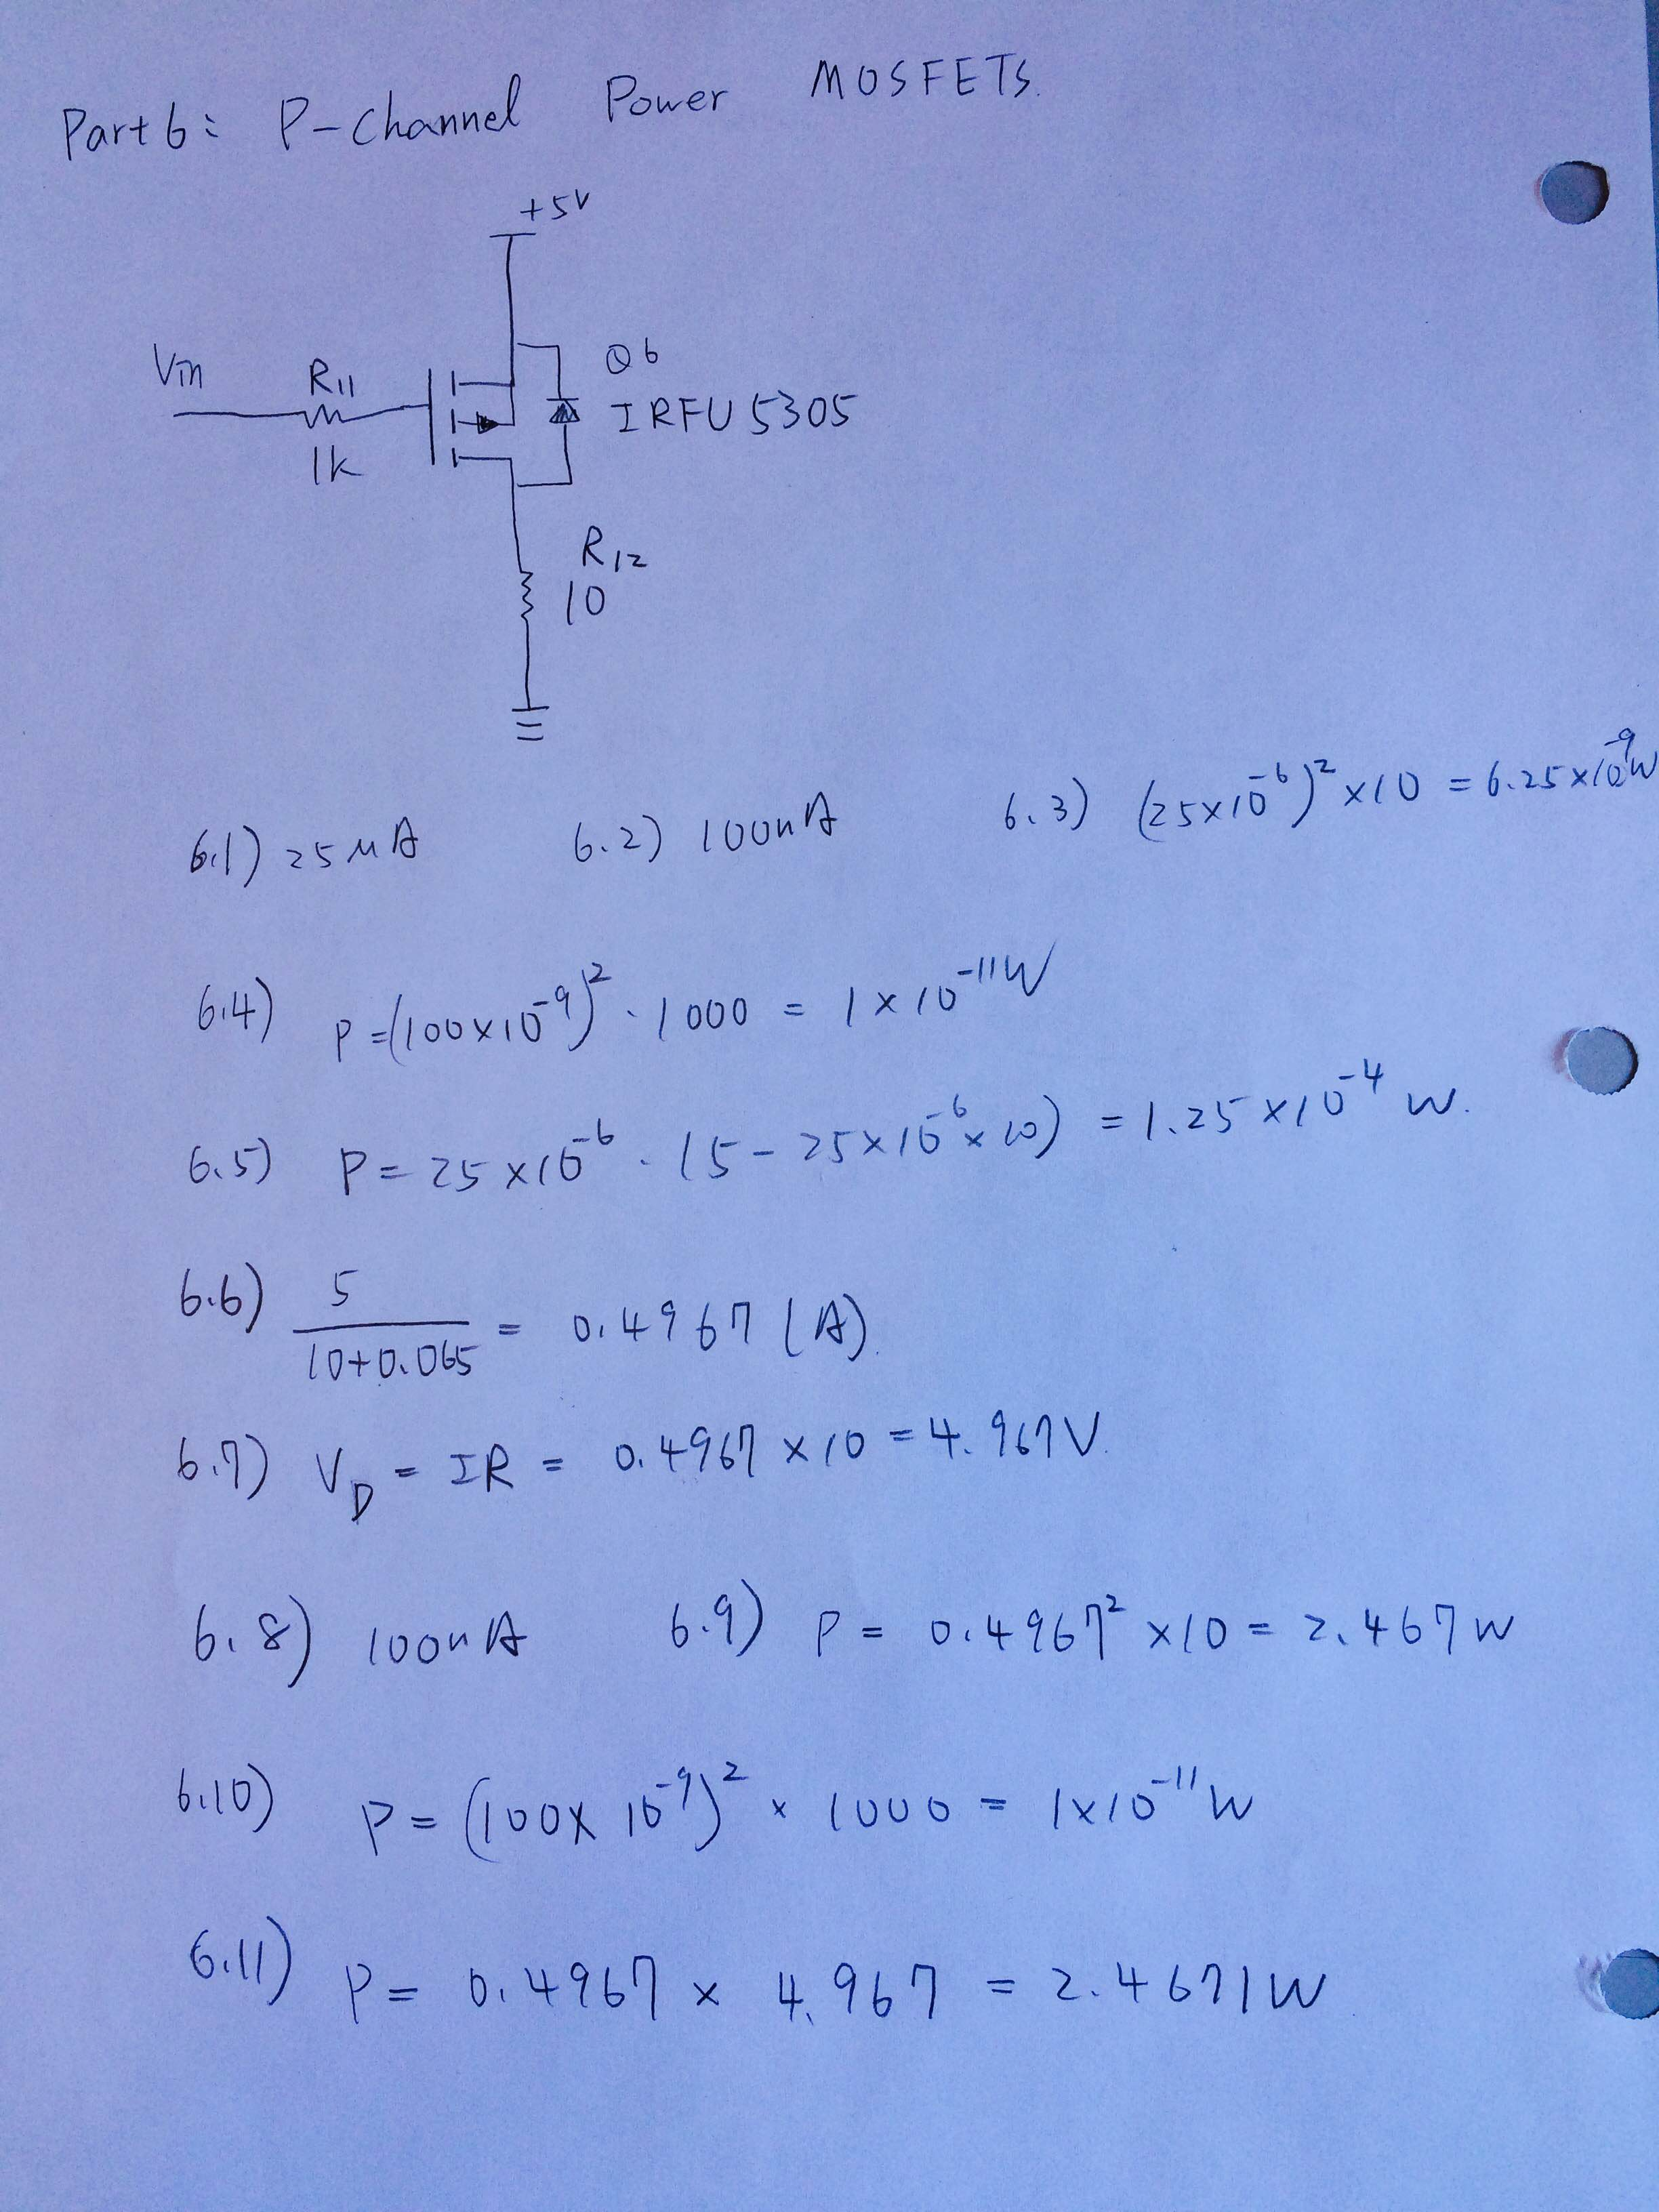 Part 6: P-Channel Power MOSFETS.
+5V
Vin
R11
1K
Q6
IRFU5305
R12
10
6.1) 25μA 6.2) 100nA 6.3) (25×10⁻⁶)²×10 = 6.25×10⁻⁹W
6.4) P=(100×10⁻⁹)²·1000 = 1×10⁻¹¹W
6.5) P=25×10⁻⁶·(5-25×10⁻⁶×10) = 1.25×10⁻⁴ W.
6.6) 5/(10+0.065) = 0.4967 (A).
6.7) V_D = IR = 0.4967×10 = 4.967V.
6.8) 100nA 6.9) P = 0.4967²×10 = 2.467W
6.10) P = (100×10⁻⁹)²×1000 = 1×10⁻¹¹W
6.11) P = 0.4967 × 4.967 = 2.4671W